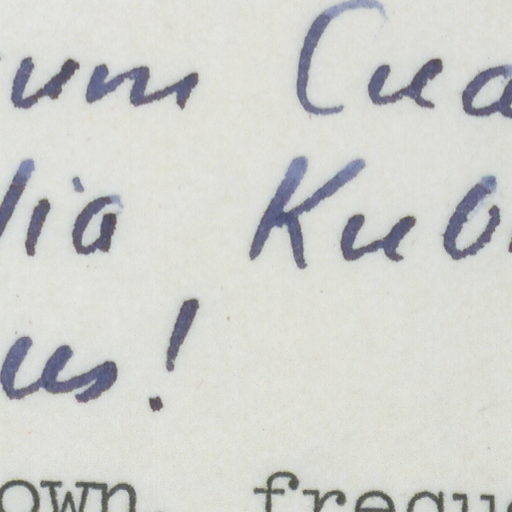 um Cua
lia Kub
us!
own, frequ